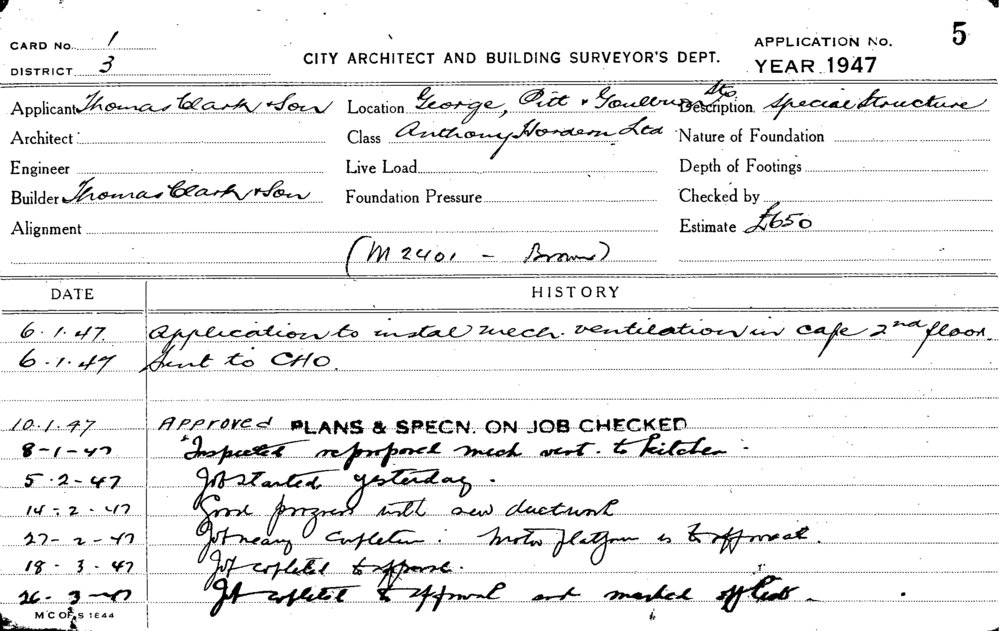 CARD No. 1
DISTRICT 3
CITY ARCHITECT AND BUILDING SURVEYOR'S DEPT.
APPLICATION No. 5
YEAR 1947
Applicant Thomas Clark & Son
Location George, Pitt & Goulburn Sts.
Description Special Structure
Architect
Class Anthony Hordern Ltd
Nature of Foundation
Engineer
Live Load
Depth of Footings
Builder Thomas Clark & Son
Foundation Pressure
Checked by
Alignment
Estimate £650
(M 2401 - Brown)
DATE HISTORY
6.1.47. Application to instal mech. ventilation in cafe 2nd floor.
6.1.47 Sent to CHO.
10.1.47 APPROVED PLANS & SPECN. ON JOB CHECKED
8-1-47 Inspected re proposed mech vent. to kitchen.
5-2-47 Job started yesterday.
14-2-47 Good progress with new ductwork
27-2-47 Job neary completion. Motor platform is to approval.
18-3-47 Job completed to approval.
26-3-47 Job completed to approval and marked off
M C OF S 1644